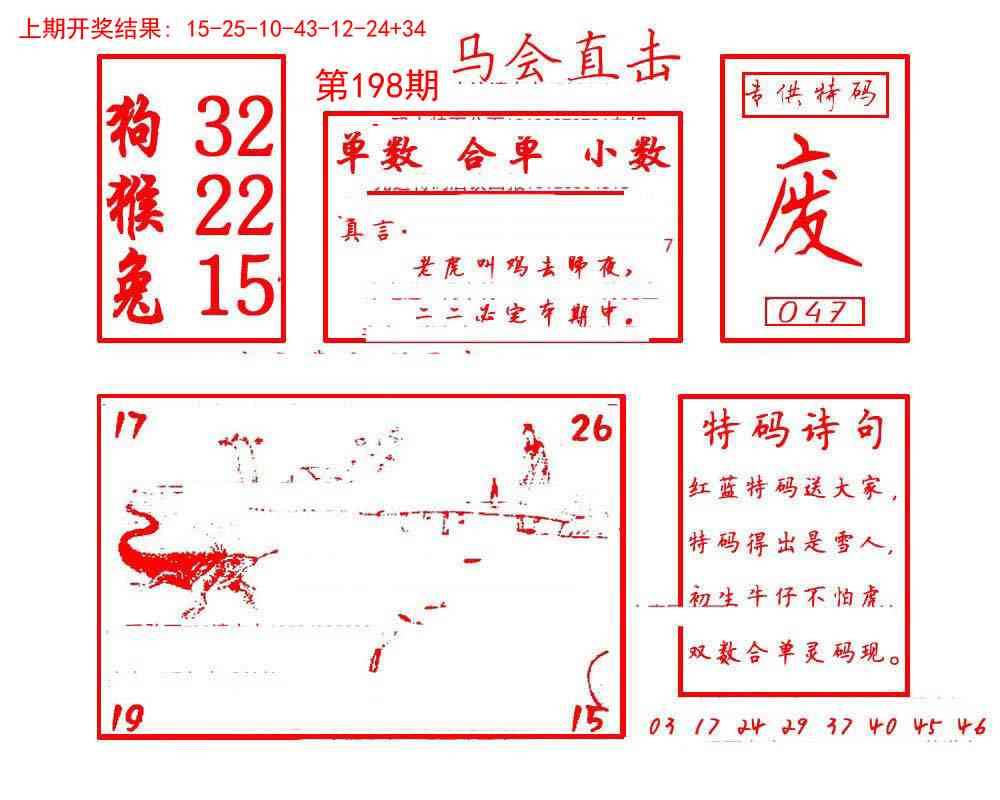 上期开奖结果：15-25-10-43-12-24+34
马会直击
第198期
狗 32
猴 22
兔 15
单数 合单 小数
真言.
7
老虎叫鸡去睇夜，
二二必定本期中。
专供特码
废
047
17
26
19
15
特码诗句
红蓝特码送大家，
特码得出是雪人，
初生牛仔不怕虎.
双数合单灵码现。
03 17 24 29 37 40 45 46